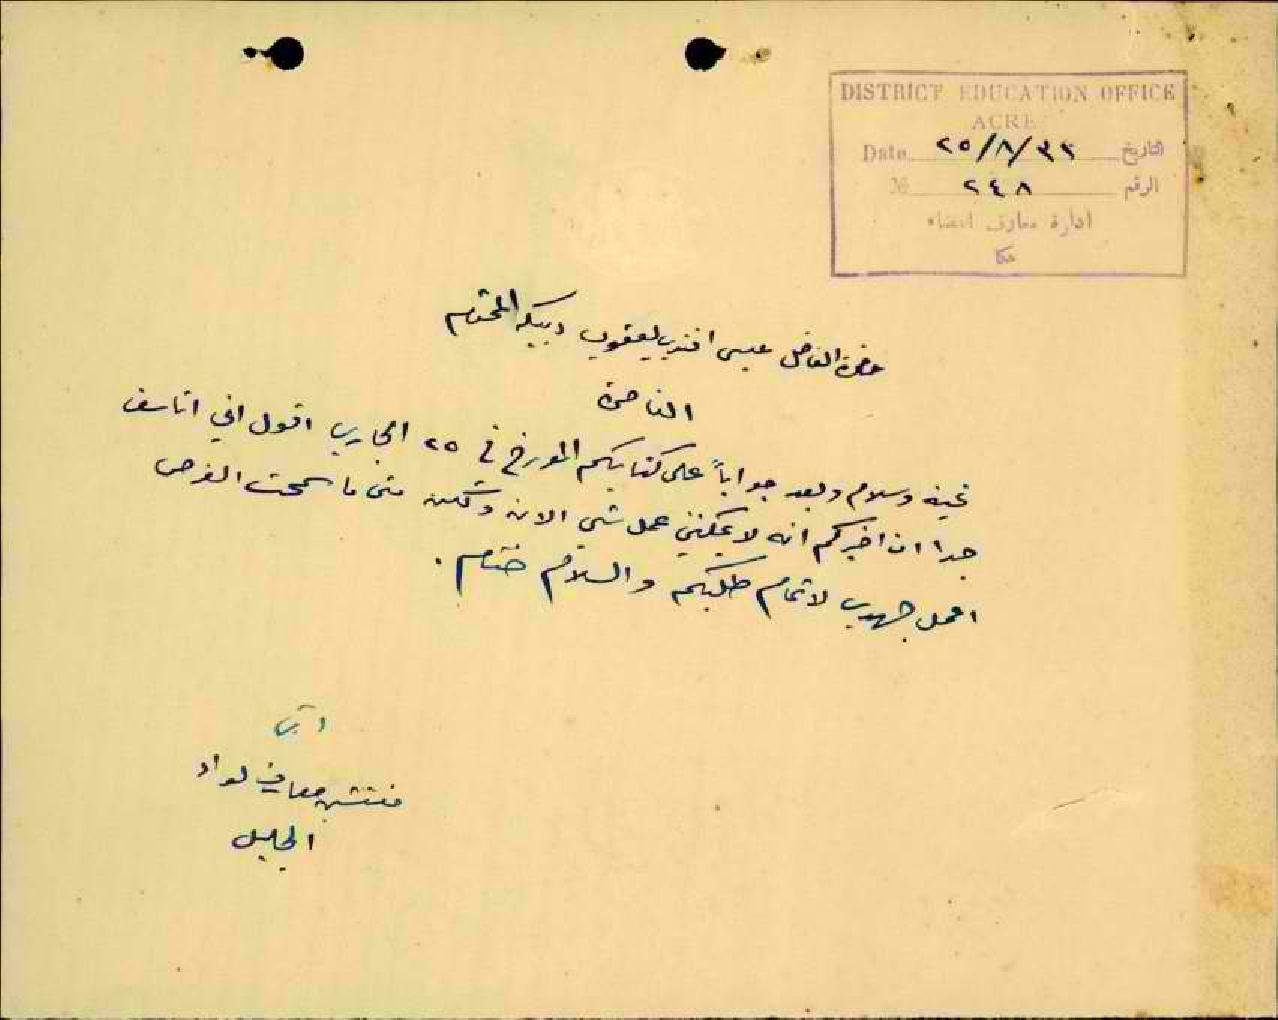 DISTRICT EDUCATION OFFICE
ACRE
Date ٢٥/٨/٣٢ التاريخ
№ ٢٤٨ الرقم
ادارة معارف قضاء
عكا
حضرة الفاضل عيسى افندي يعقوب المحترم
الناصرة
تحية وسلام وبعد جواباً على كتابكم المورخ في ٢٥ الجاري اقول اني اتاسف
جدا ان اخبركم انه لا يمكنني عمل شي الان ولكن متى ما سمحت الفرص
اعمل جهدي لاتمام طلبكم والسلام ختام .
مفتش معارف لواء
الجليل